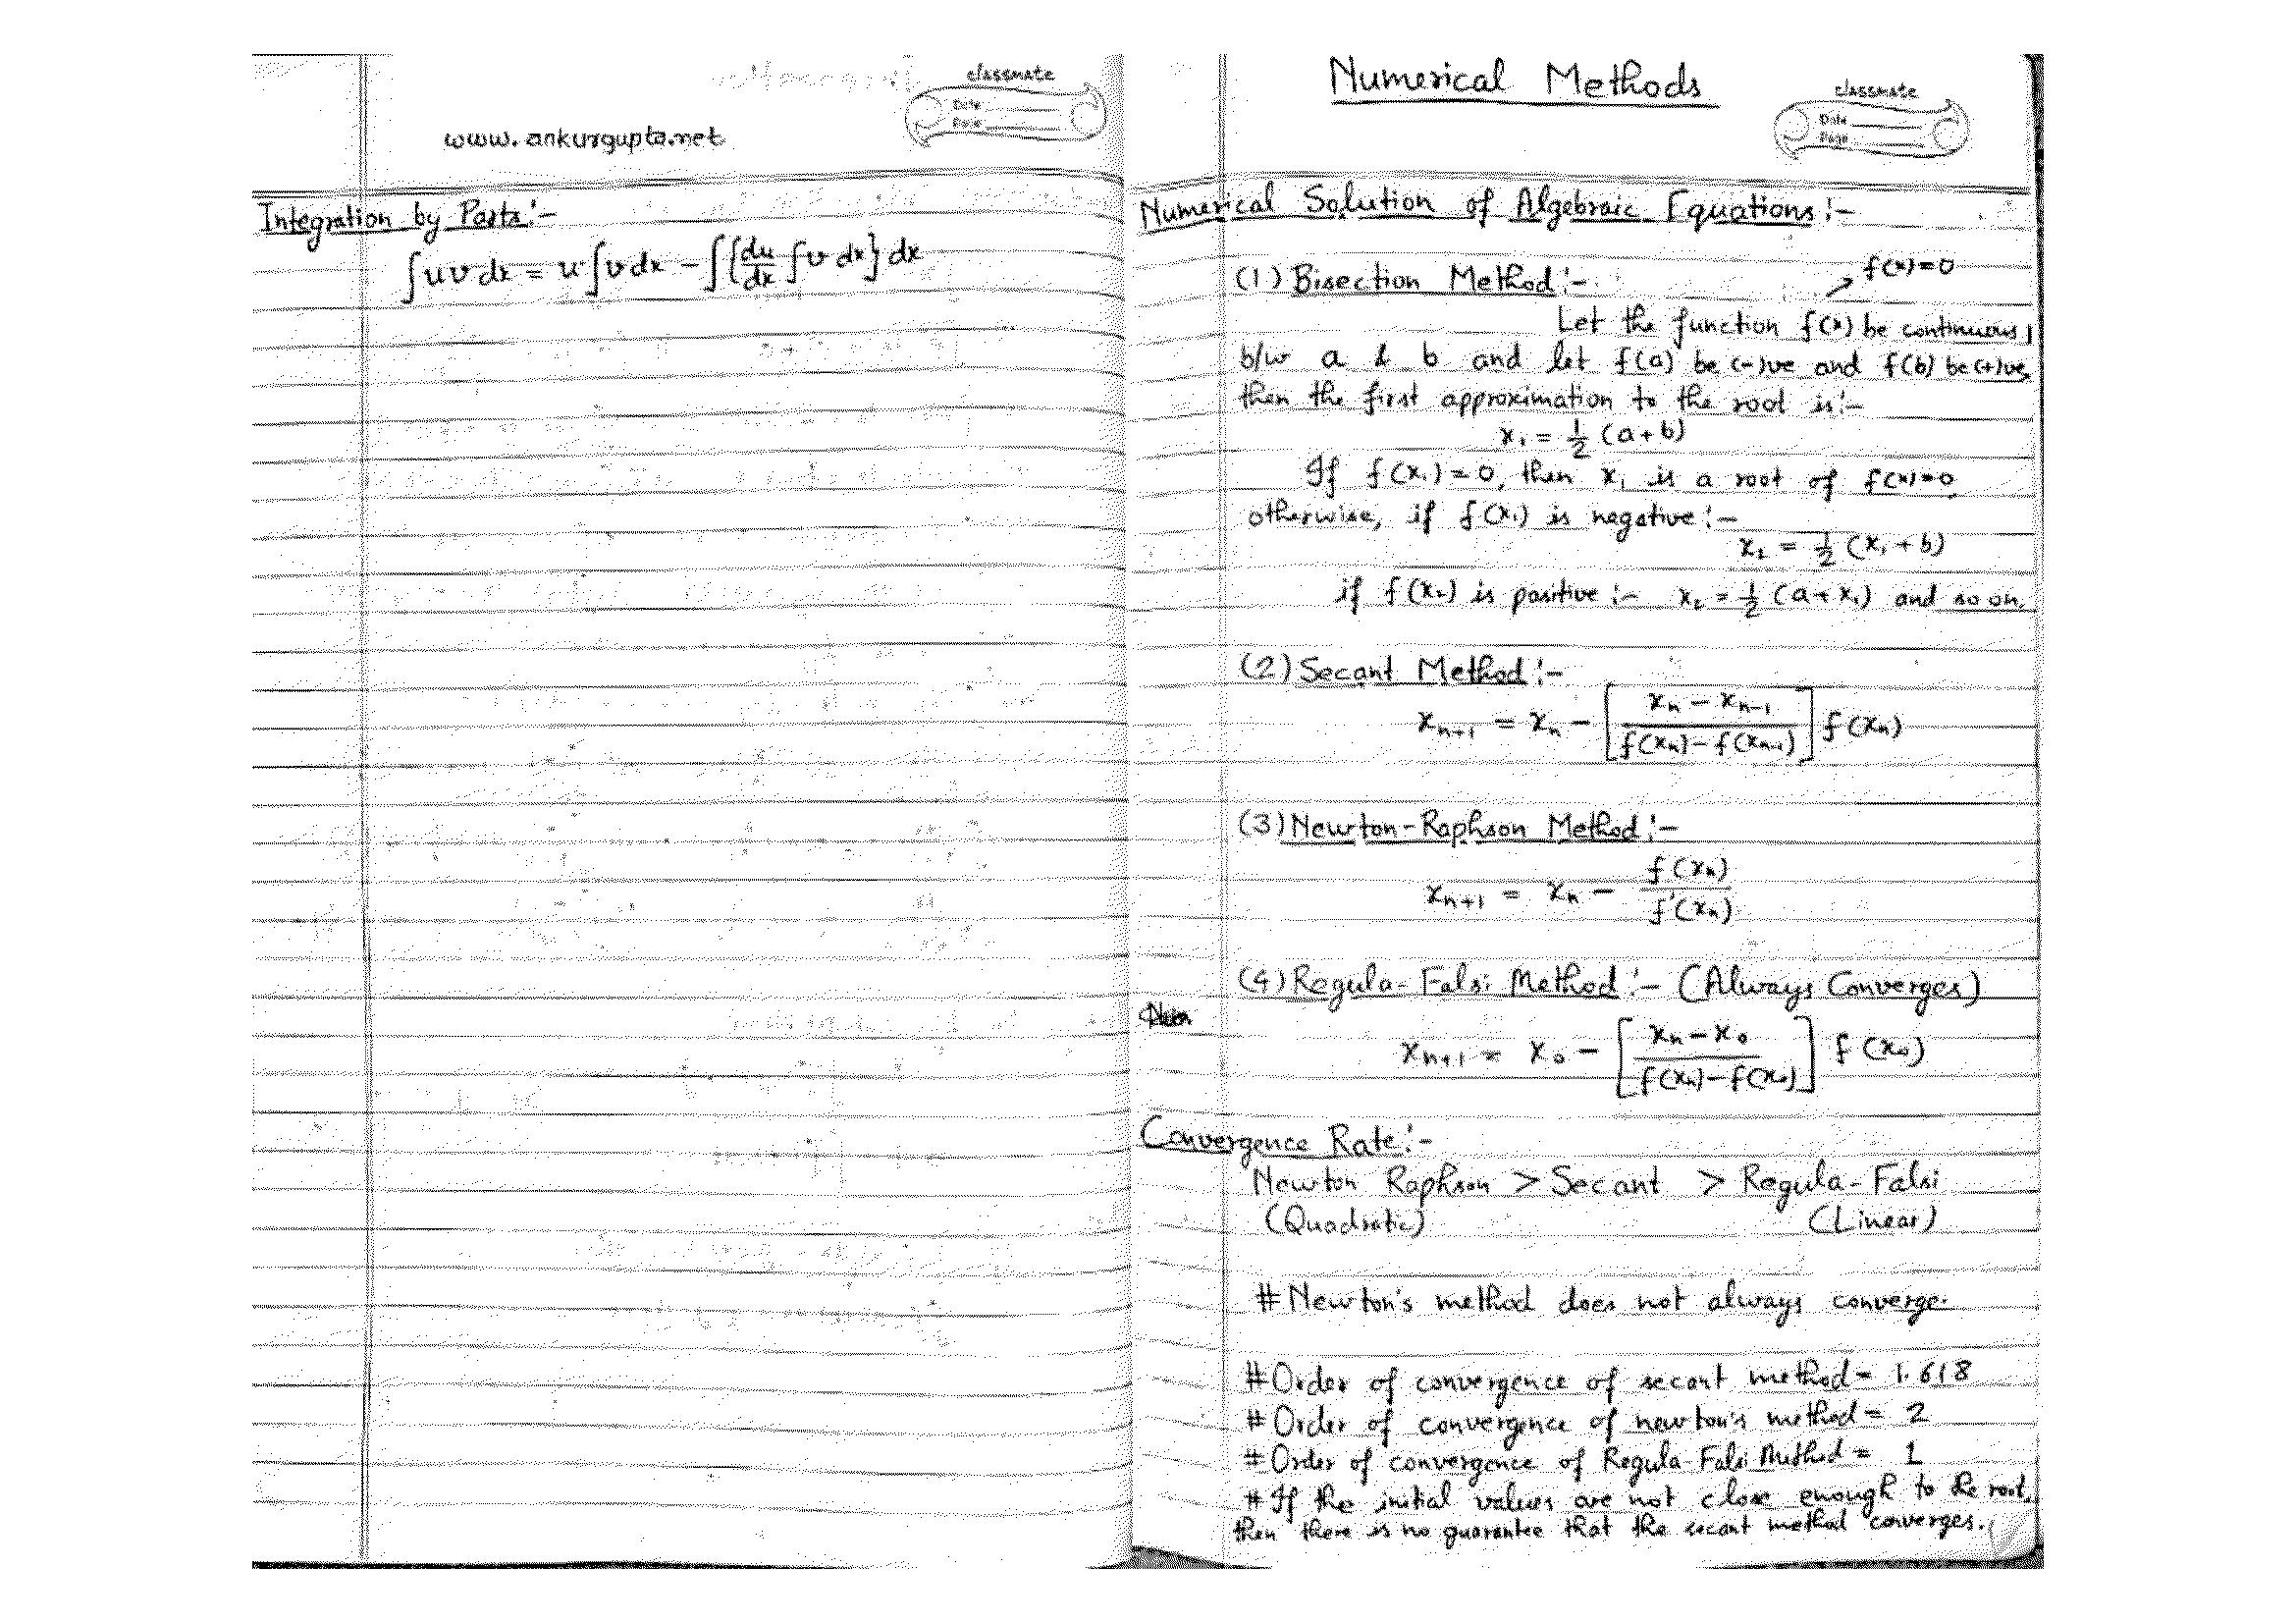 classmate
Date
Date
www.ankurgupta.net
Integration by Parts:-
∫uv dx = u ∫v dx - ∫{du/dx ∫v dx} dx
Numerical Methods
classmate
Date
Page
Numerical Solution of Algebraic Equations:-
(1) Bisection Method:-
f(x)=0
Let the function f(x) be continuous
b/w a & b and let f(a) be (-)ve and f(b) be (+)ve,
then the first approximation to the root is:-
x₁ = 1/2 (a+b)
If f(x₁)=0, then x₁ is a root of f(x)=0,
otherwise, if f(x₁) is negative:-
x₂ = 1/2 (x₁+b)
if f(x₂) is positive:- x₂ = 1/2 (a+x₁) and so on.
(2) Secant Method:-
xₙ₊₁ = xₙ - [(xₙ - xₙ₋₁)/(f(xₙ)-f(xₙ₋₁))] f(xₙ)
(3) Newton-Raphson Method:-
xₙ₊₁ = xₙ - f(xₙ)/f'(xₙ)
(4) Regula-Falsi Method:- (Always Converges)
xₙ₊₁ = x₀ - [(xₙ-x₀)/(f(xₙ)-f(x₀))] f(x₀)
Convergence Rate:-
Newton Raphson > Secant > Regula-Falsi
(Quadratic) (Linear)
#Newton's method does not always converge.
#Order of convergence of secant method = 1.618
#Order of convergence of newton's method = 2
#Order of convergence of Regula Falsi Method = 1
#If the initial values are not close enough to the root,
then there is no guarantee that the secant method converges.